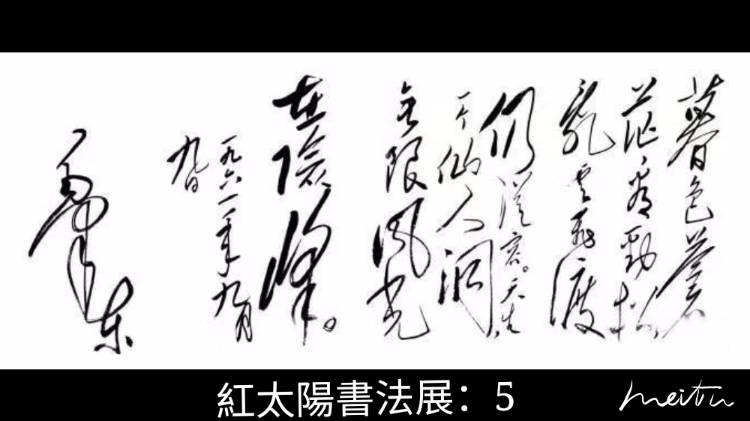 暮色蒼
茫看勁松
亂云飛渡
仍從容。天生
一个仙人洞
無限風光
在險峰。
一九六一年九月
九日
毛澤东
紅太陽書法展：5
meitu